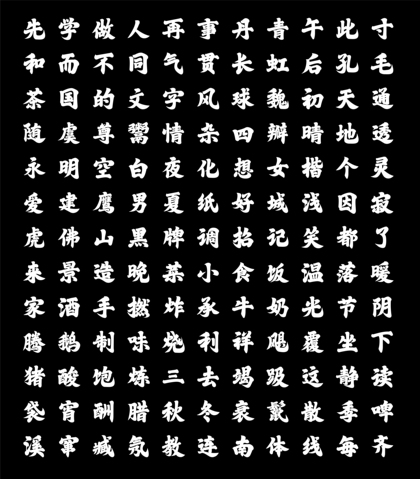 先学做人再事丹青午此寸
和而不同气贯长虹后孔毛
茶国的文字风球魏初天通
随虞尊鸞情杂四辩晴地透
永明空白夜化想女楷个灵
爱建鹰男夏纸好城浅因寂
虎佛山黑牌调招记笑都了
来景造晚菜小食饭温落暖
家酒手撚炸承牛奶光节阴
腾鹅制味烧利祥飓覆坐下
猪酸饱炼三去竭趿这静读
袋宵酬腊秋冬哀鬣散季啤
溪窜臧氛教连南体线每齐